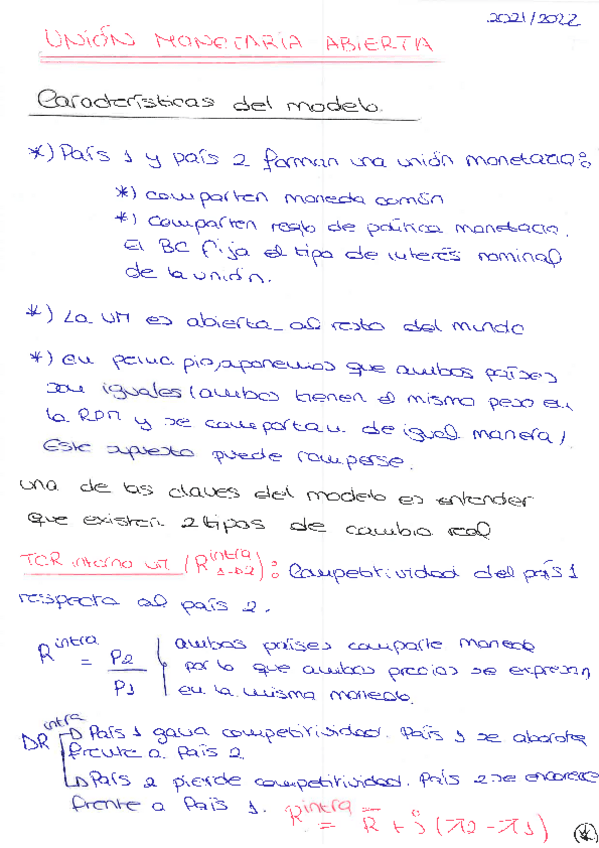 2021/2022
UNIÓN MONETARIA ABIERTA
Características del modelo.
*) País 1 y país 2 forman una unión monetaria:
*) comparten moneda común
*) comparten regla de política monetaria.
El BC fija el tipo de interés nominal
de la unión.
*) La UM es abierta al resto del mundo
*) en principio, suponemos que ambos países
son iguales (ambos tienen el mismo peso en
la RPM y se comportan de igual manera).
Este supuesto puede romperse.
una de las claves del modelo es entender
que existen 2 tipos de cambio real
TCR interno UM (R intra 1-D2): Competitividad del país 1
respecto al país 2.
R intra = P2/P1 | ambos países comparte moneda
por lo que ambos precios se expresan
en la misma moneda.
DR intra → País 1 gana competitividad. País 1 se abarata
frente a País 2.
→ País 2 pierde competitividad. País 2 se encarece
frente a País 1.
R intra = R̄ + j (π2 - π1) (*)